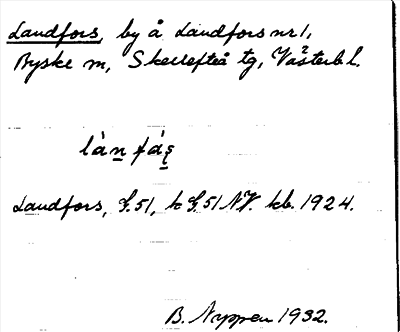 Landfors, by å Landfors nr 1,
Byske sn, Skellefteå tg, Västerb l.
làn fàs̨
Landfors, G.51, to G51 NV. kb. 1924.
B. Nyppen 1932.